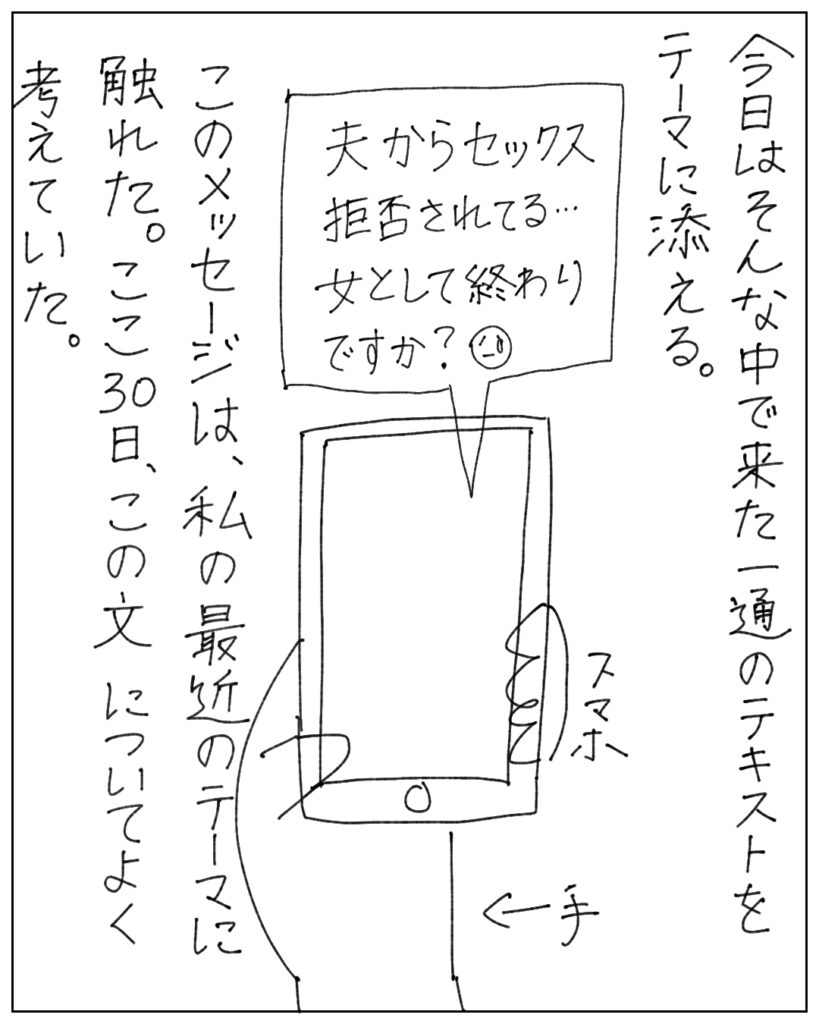 今日はそんな中で来た一通のテキストを
テーマに添える。
夫からセックス
拒否されてる…
女として終わり
ですか?
スマホ
←手
このメッセージは、私の最近のテーマに
触れた。ここ30日、この文についてよく
考えていた。